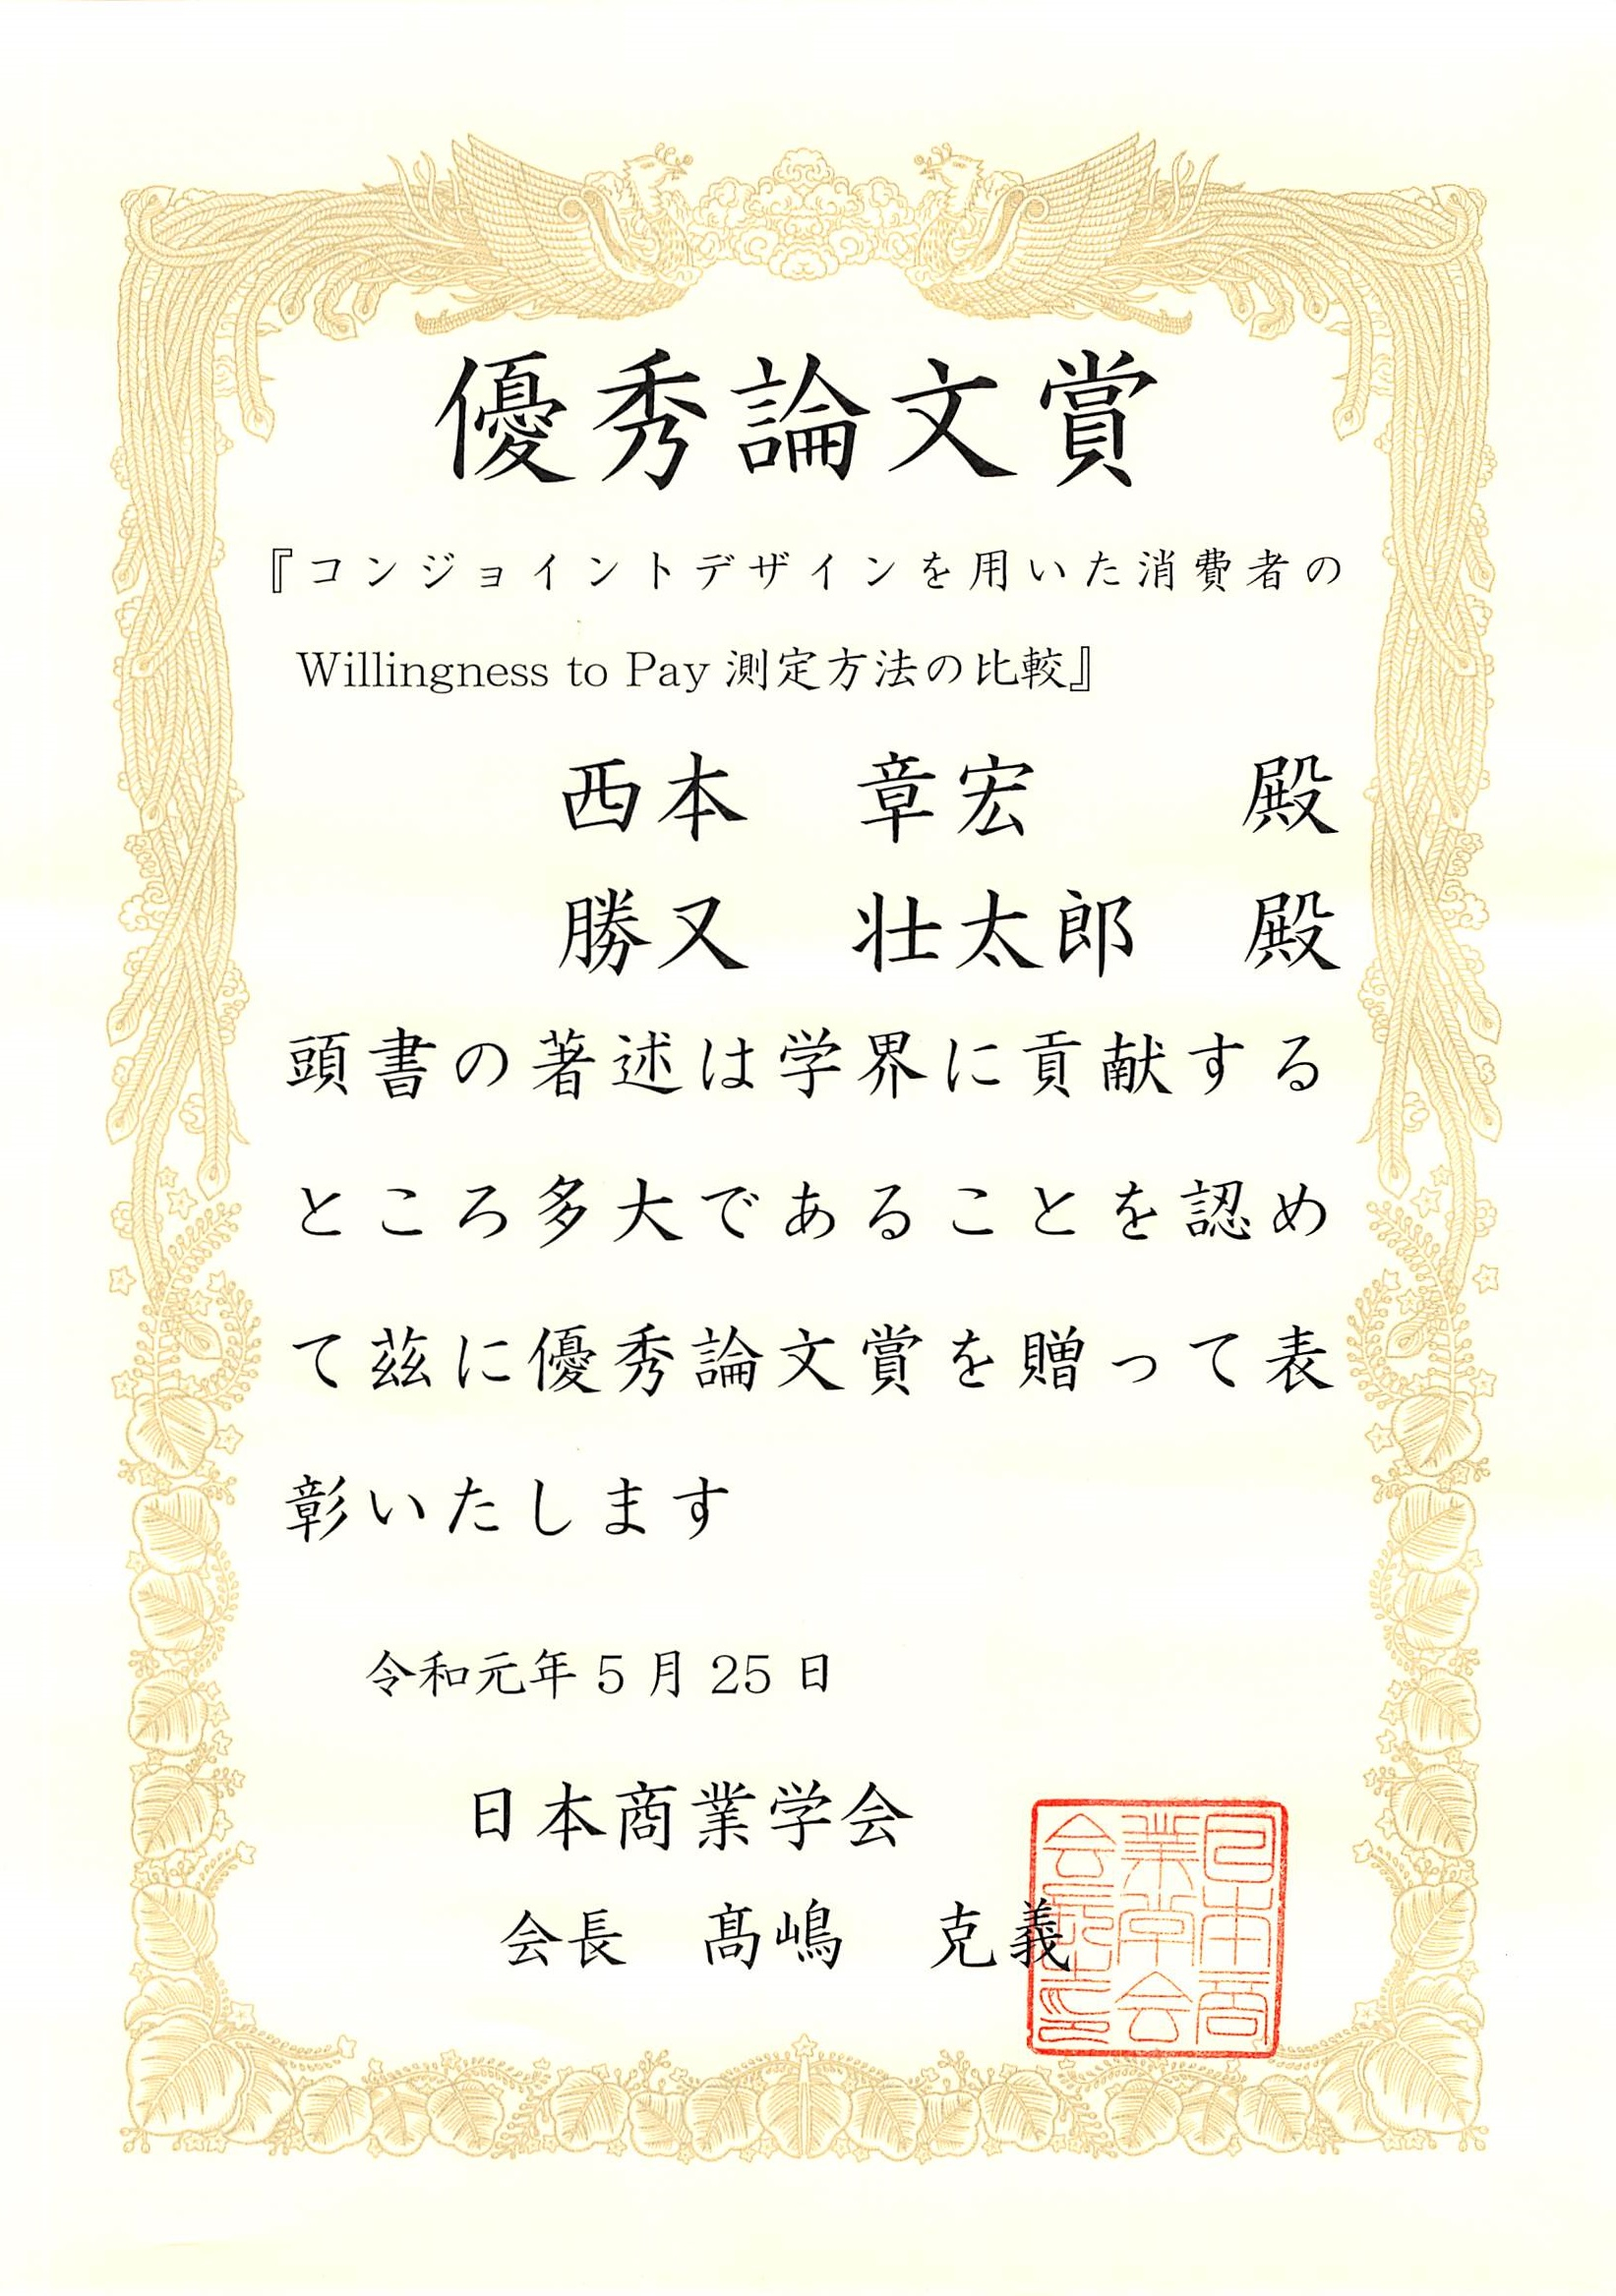 優秀論文賞
『コンジョイントデザインを用いた消費者の
Willingness to Pay 測定方法の比較』
西本　章宏　殿
勝又　壮太郎　殿
頭書の著述は学界に貢献する
ところ多大であることを認め
て茲に優秀論文賞を贈って表
彰いたします
令和元年 5 月 25 日
日本商業学会
会長　髙嶋　克義
日本商業学会会長之印